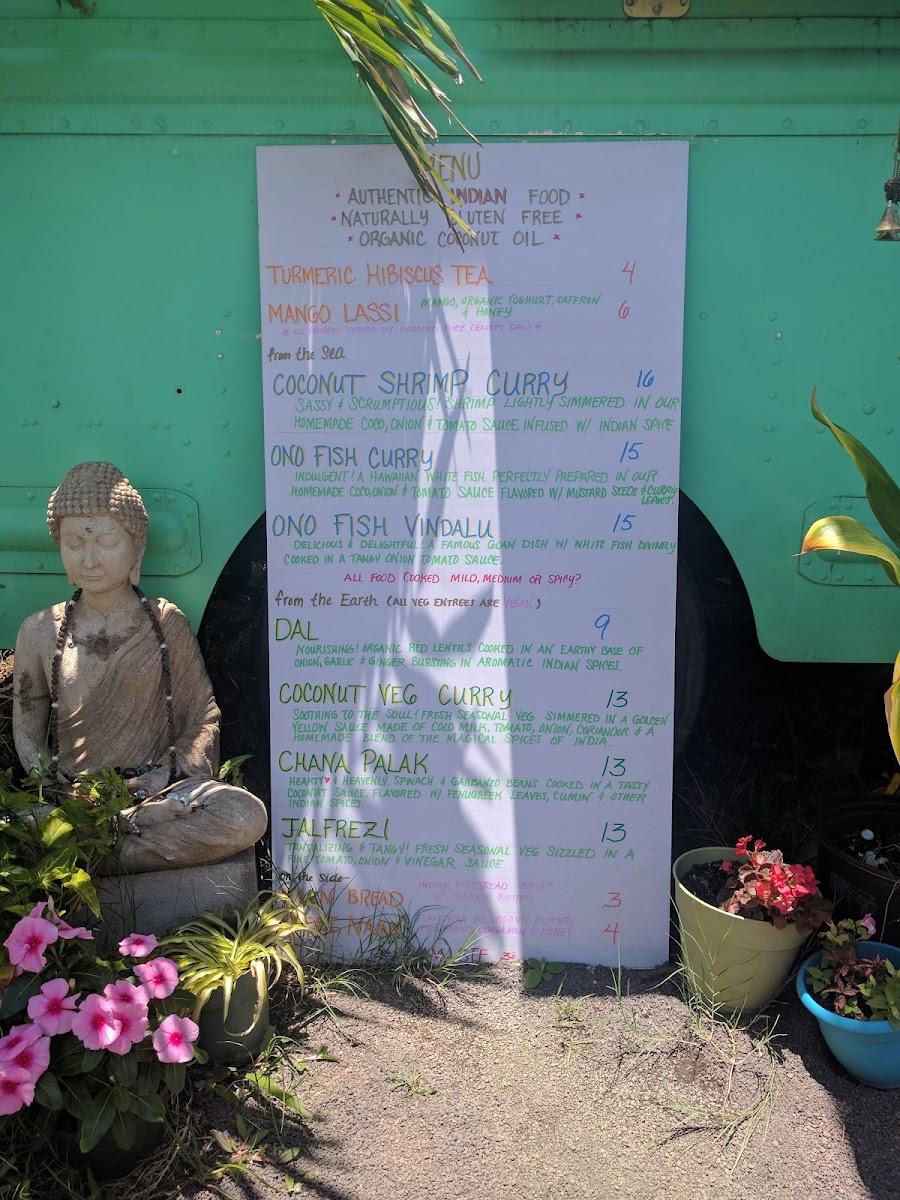 MENU
• AUTHENTIC INDIAN FOOD •
• NATURALLY GLUTEN FREE •
• ORGANIC COCONUT OIL •
TURMERIC HIBISCUS TEA 4
MANGO LASSI MANGO, ORGANIC YOGHURT, SAFFRON & HONEY 6
ALL ENTREES SERVED W/ BASMATI RICE (EXCEPT DAL)
from the Sea
COCONUT SHRIMP CURRY 16
SASSY & SCRUMPTIOUS! SHRIMP LIGHTLY SIMMERED IN OUR
HOMEMADE COCO, ONION & TOMATO SAUCE INFUSED W/ INDIAN SPICE.
ONO FISH CURRY 15
INDULGENT! A HAWAIIAN WHITE FISH PERFECTLY PREPARED IN OUR
HOMEMADE COCO, ONION & TOMATO SAUCE FLAVORED W/ MUSTARD SEEDS & CURRY LEAVES.
ONO FISH VINDALU 15
DELICIOUS & DELIGHTFUL A FAMOUS GOAN DISH W/ WHITE FISH DIVINELY
COOKED IN A TANGY ONION TOMATO SAUCE.
ALL FOOD COOKED MILD, MEDIUM OR SPICY?
from the Earth (ALL VEG ENTREES ARE VEGAN)
DAL 9
NOURISHING! ORGANIC RED LENTILS COOKED IN AN EARTHY BASE OF
ONION, GARLIC & GINGER BURSTING IN AROMATIC INDIAN SPICES.
COCONUT VEG CURRY 13
SOOTHING TO THE SOUL! FRESH SEASONAL VEG SIMMERED IN A GOLDEN
YELLOW SAUCE MADE OF COCO MILK, TOMATO, ONION, CORIANDOR & A
HOMEMADE BLEND OF THE MAGICAL SPICES OF INDIA.
CHANA PALAK 13
HEARTY & HEAVENLY SPINACH & GARBANZO BEANS COOKED IN A TASTY
COCONUT SAUCE, FLAVORED W/ FENUGREEK LEAVES, CUMIN & OTHER
INDIAN SPICES.
JALFREZI 13
TANTALIZING & TANGY! FRESH SEASONAL VEG SIZZLED IN A
FINE TOMATO, ONION & VINEGAR SAUCE.
on the side
BREAD INDIAN FLATBREAD SERVED W/ ORGANIC BUTTER 3
NAAN W/ ORGANIC BUTTER, CINNAMON & HONEY 4